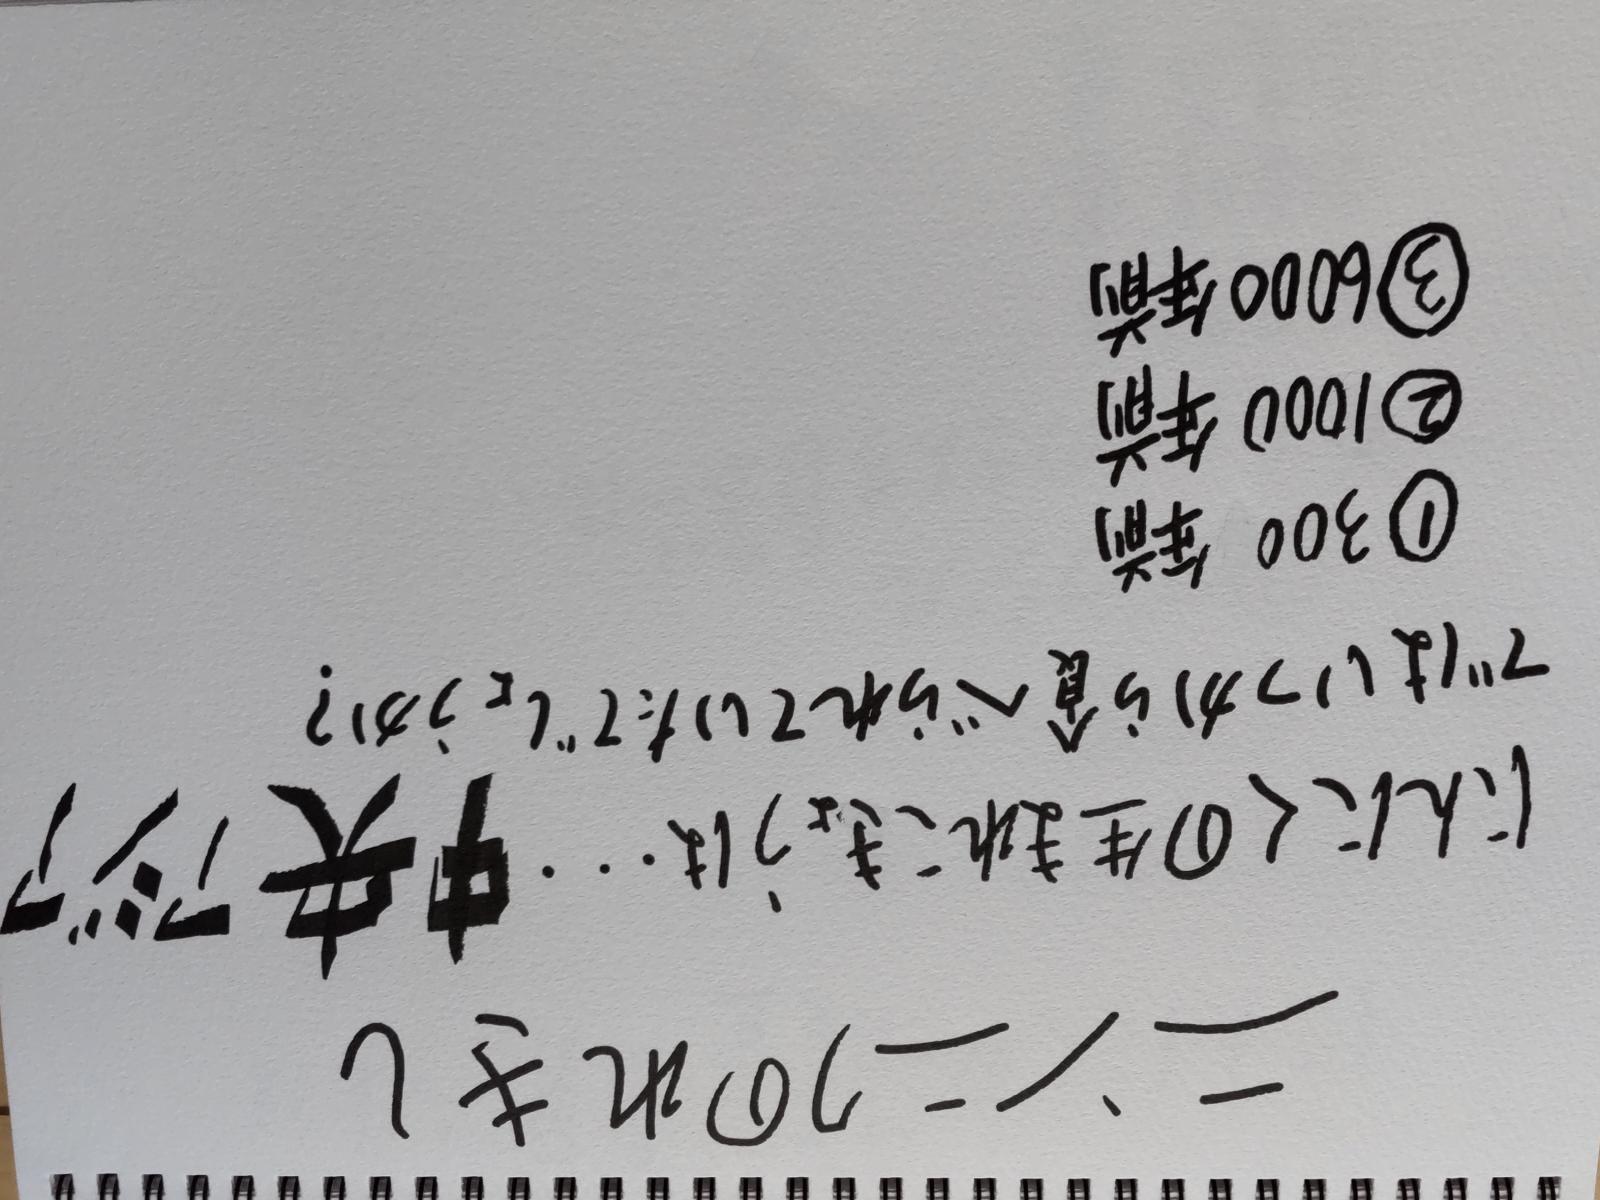 ニンニクのれきし
にんにくの生まれこきょうは…中央アジア
ではいつから食べられていたでしょうか?
①300年前
②1000年前
③6000年前